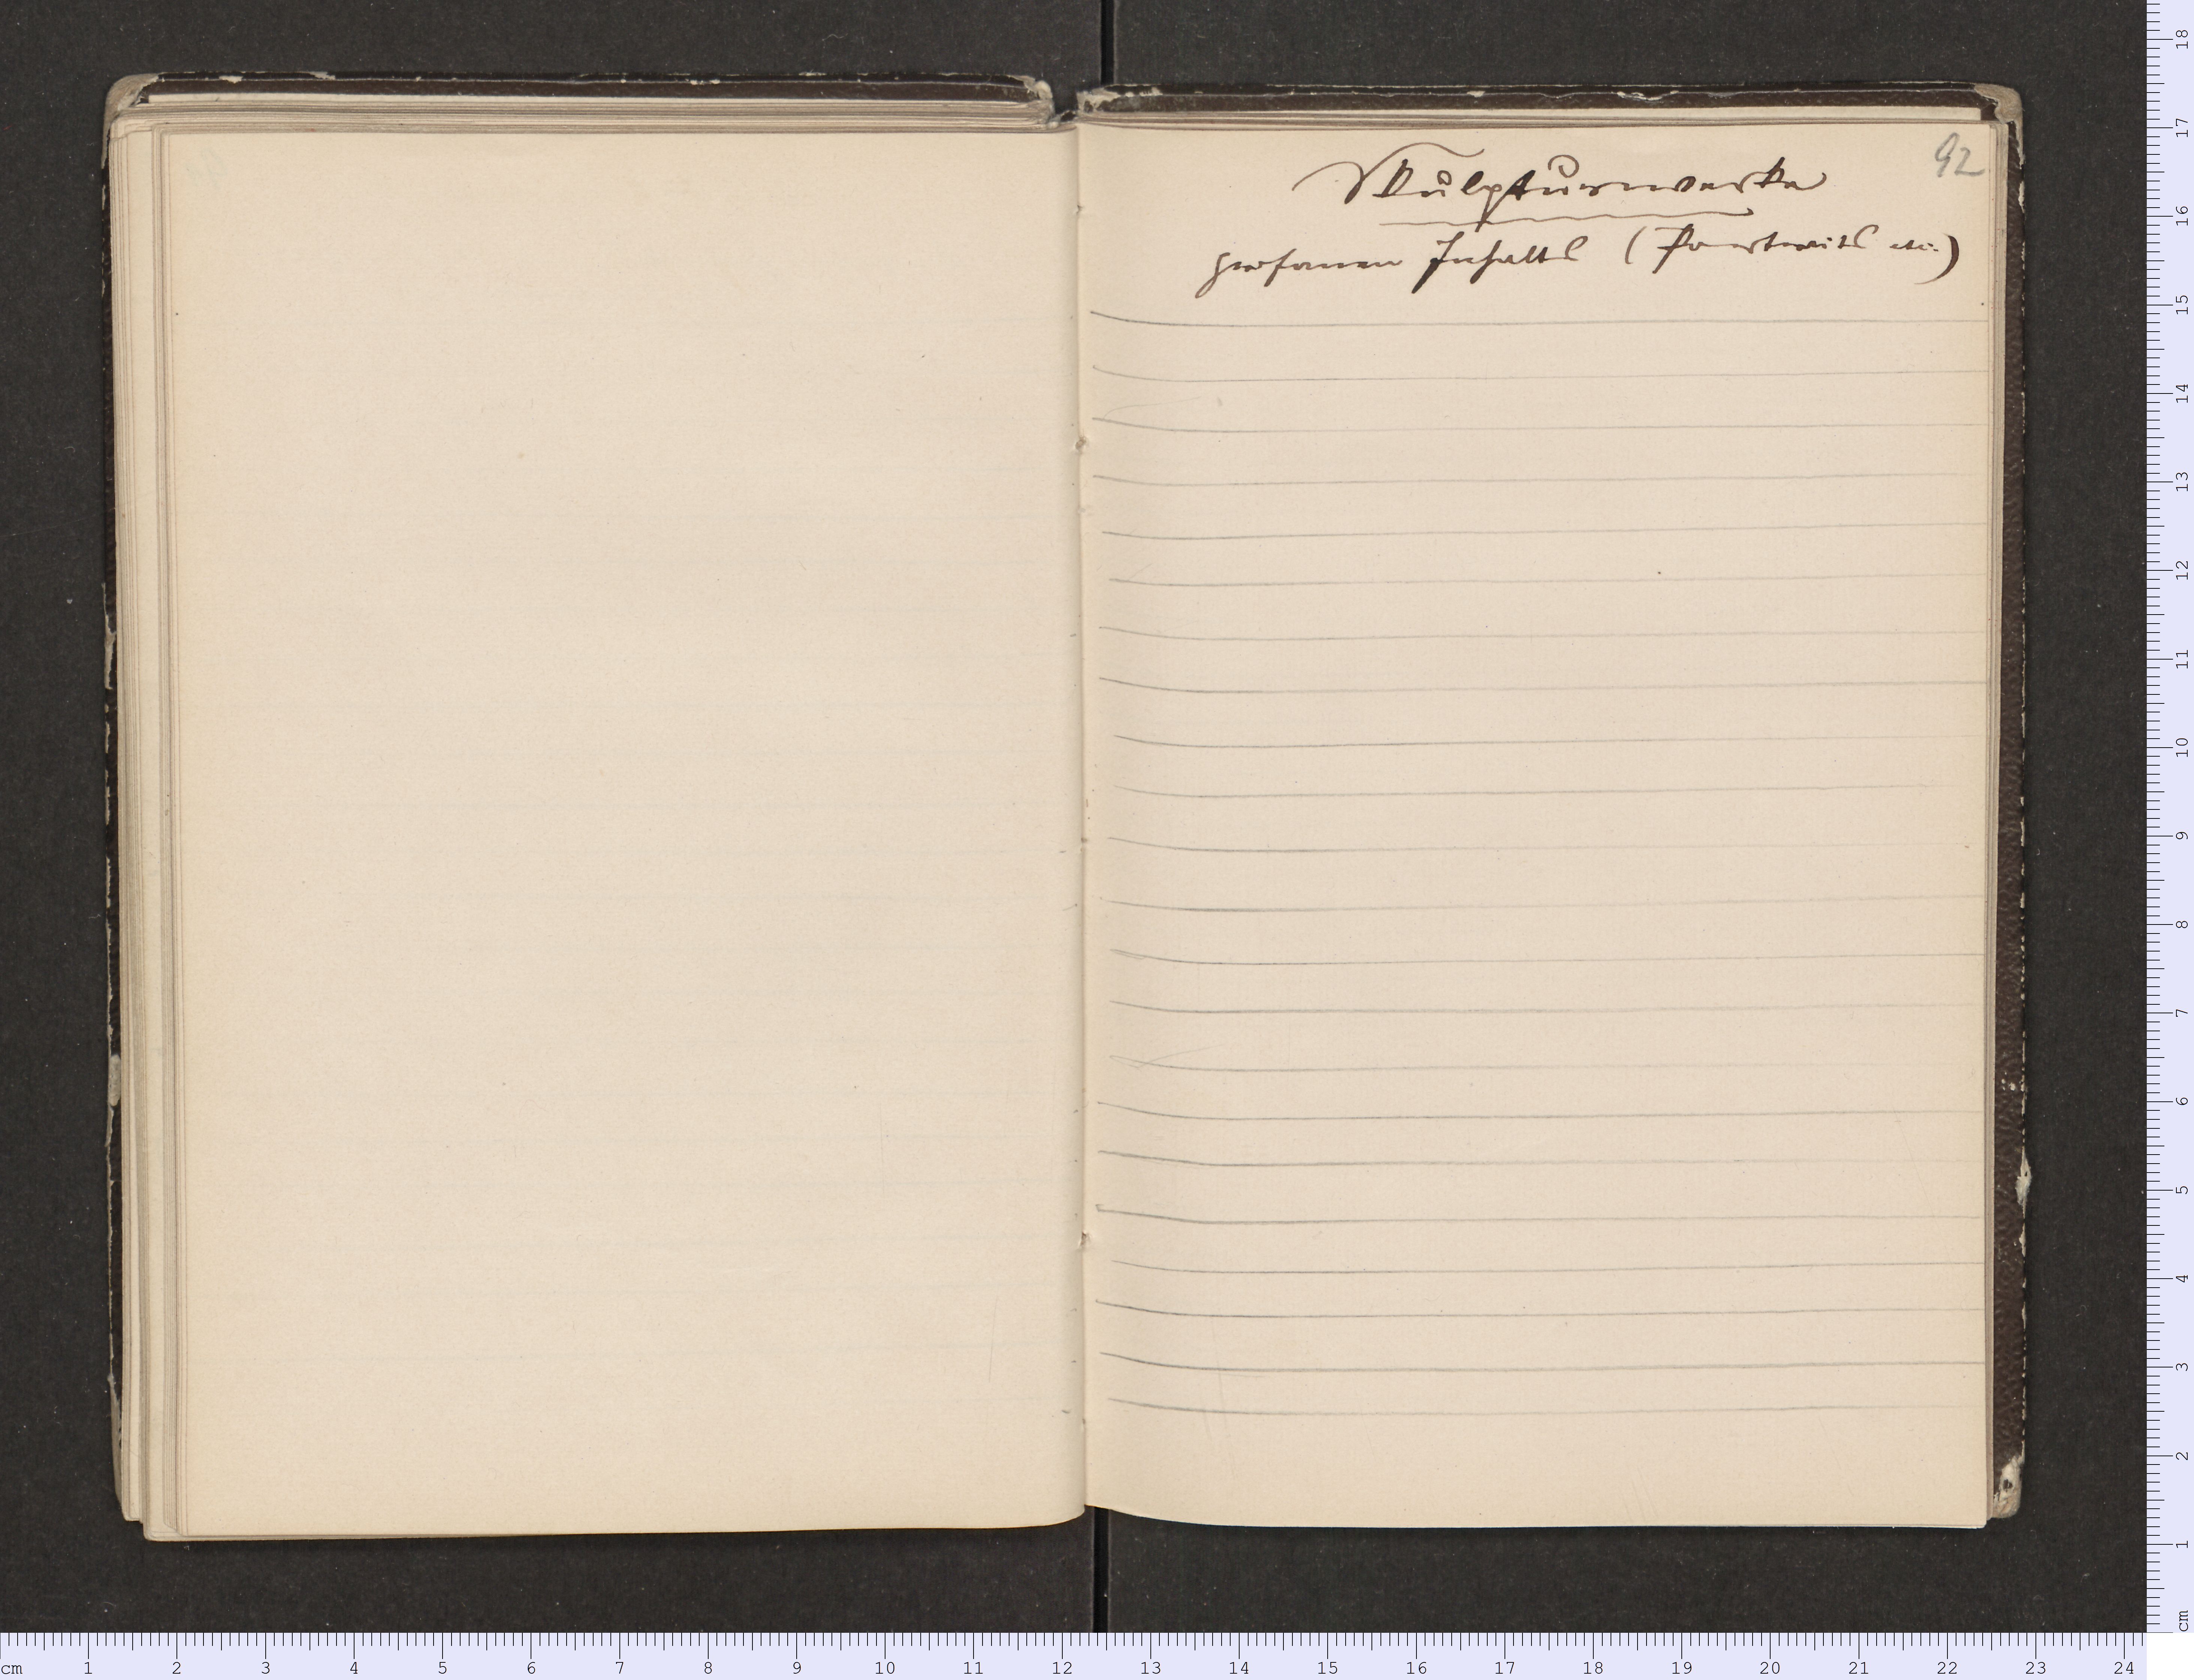 92
Skulpturwerke
profanen Inhalts (Portraits etc.)
18
17
16
15
14
13
12
11
10
9
8
7
6
5
4
3
2
1
cm
cm 1 2 3 4 5 6 7 8 9 10 11 12 13 14 15 16 17 18 19 20 21 22 23 24